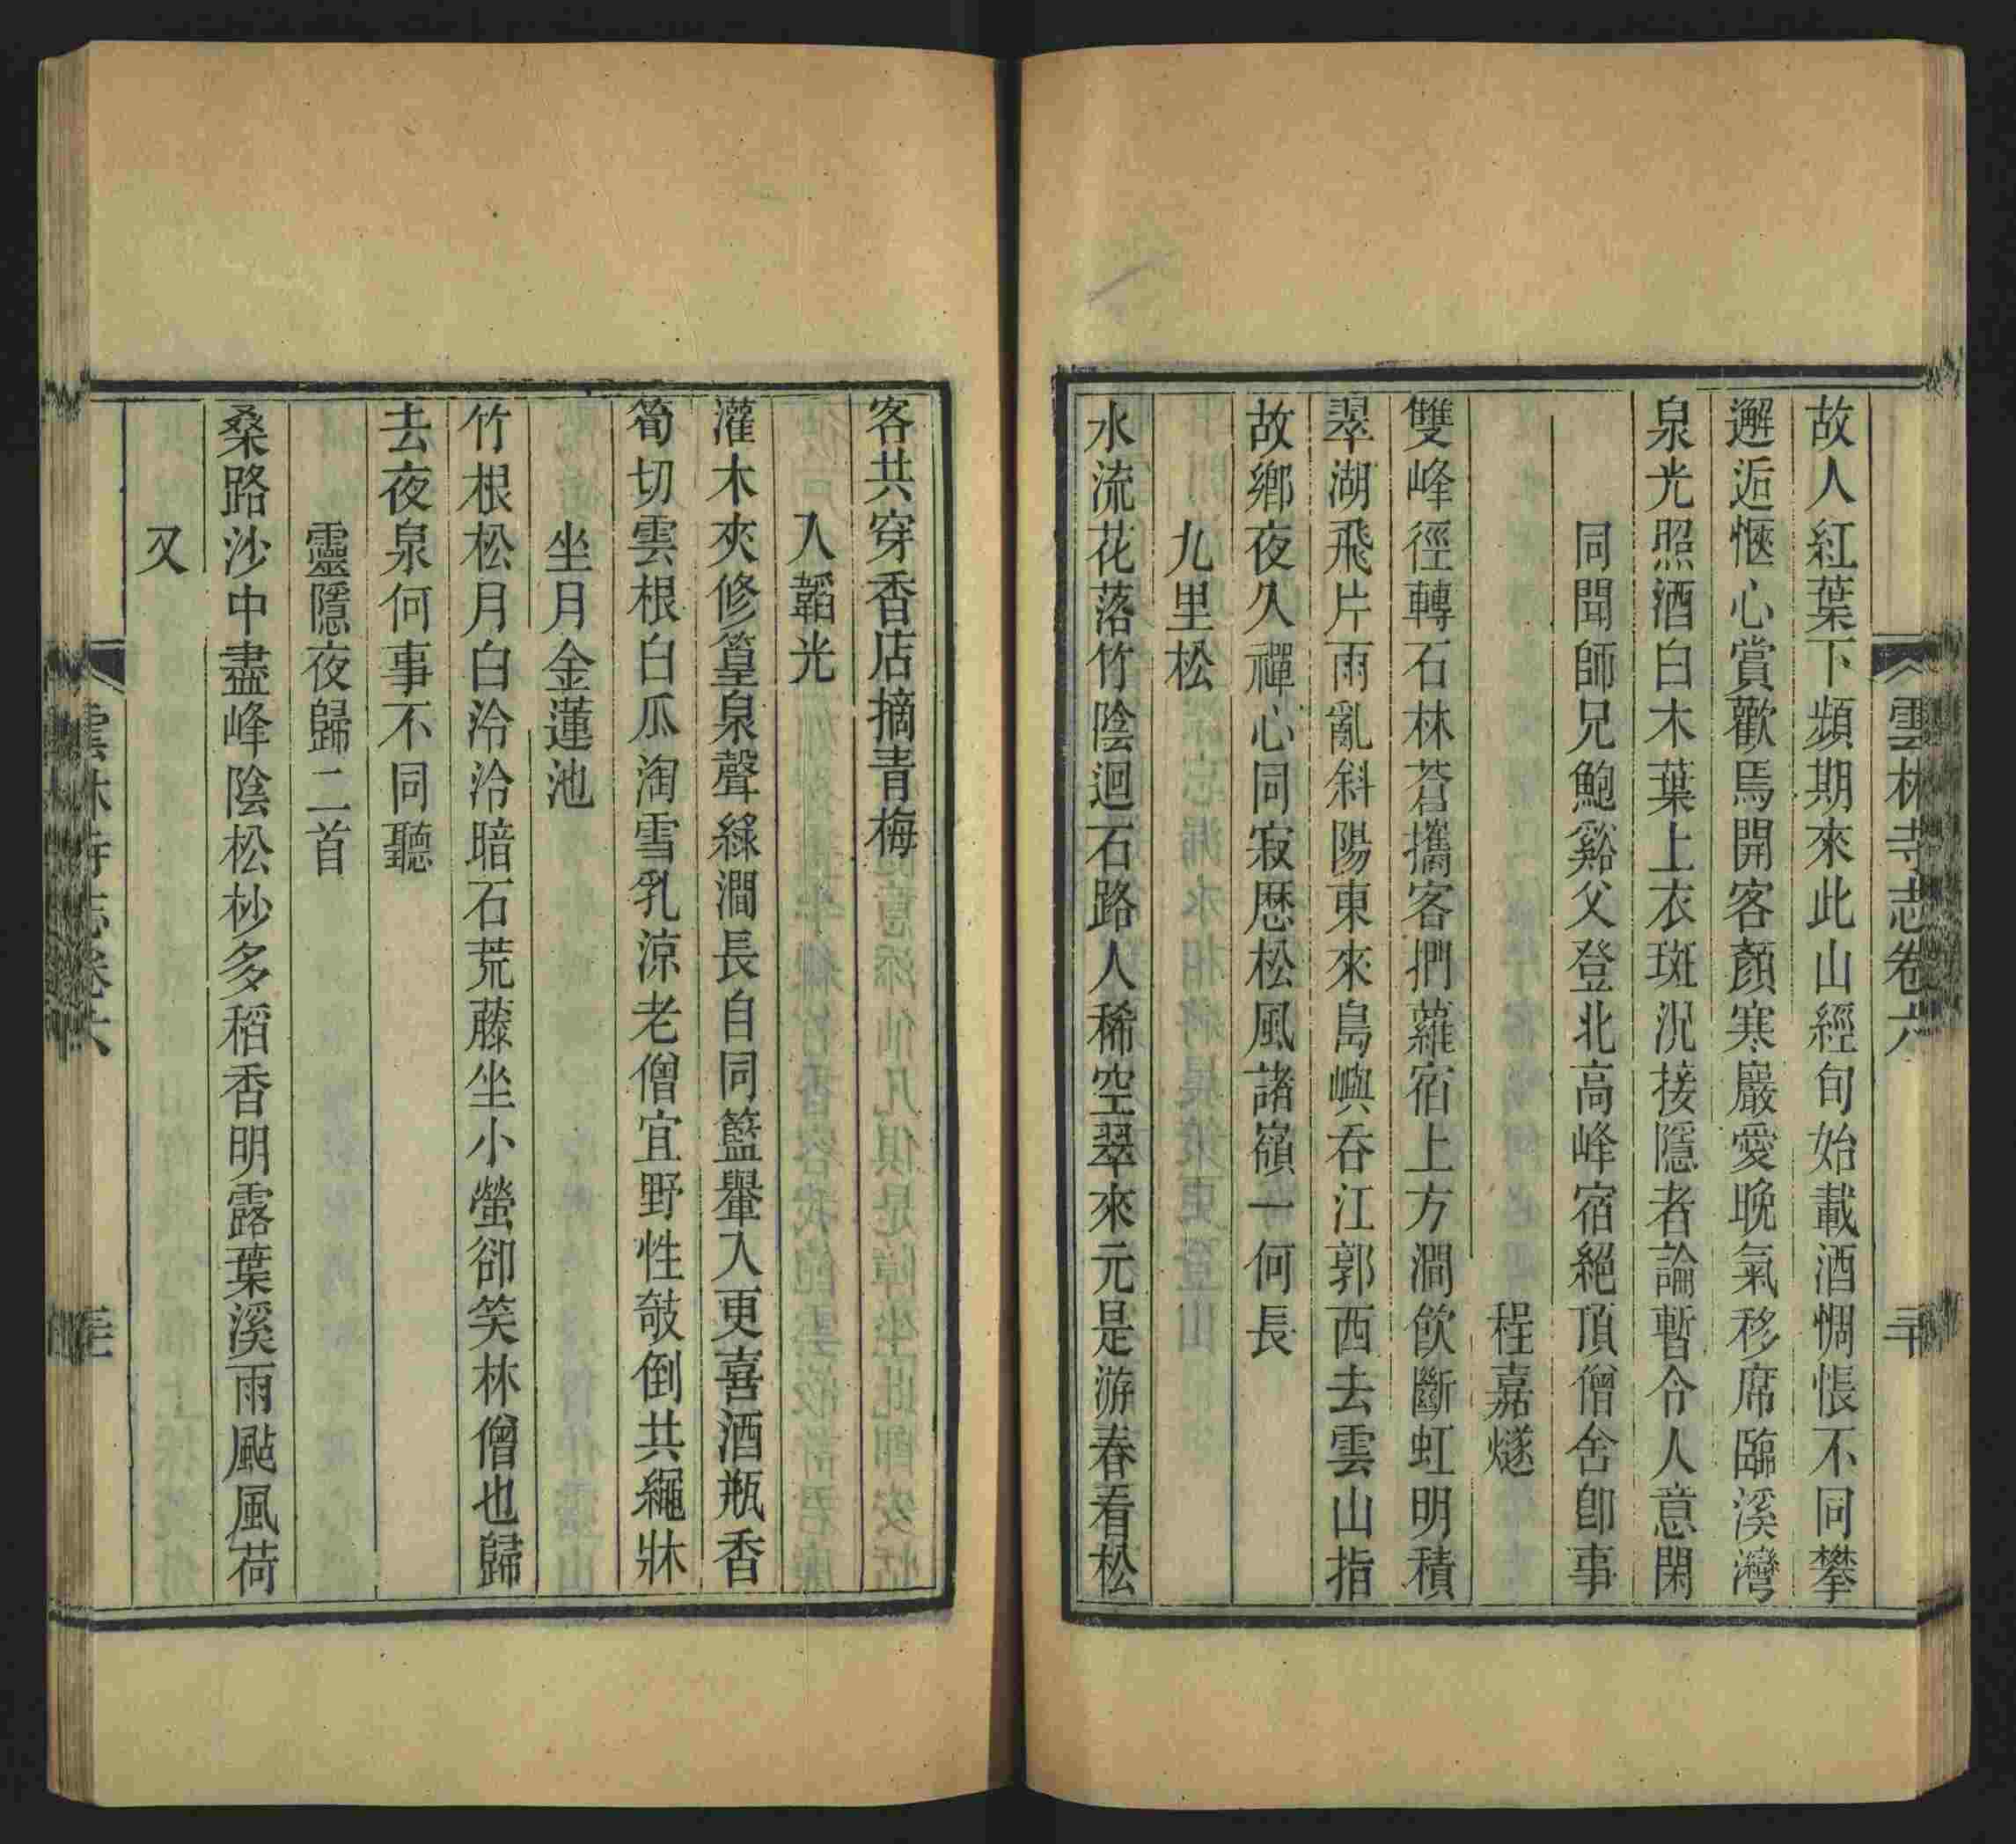 雲林寺志卷六
三十
故人紅葉下頻期來此山經旬始載酒惆悵不同攀
邂逅愜心賞歡焉開客顏寒巖愛晚氣移席臨溪灣
泉光照酒白木葉上衣斑況接隱者論暫令人意閑
同聞師兄鮑谿父登北高峰宿絕頂僧舍卽事
程嘉燧
雙峰徑轉石林蒼攜客捫蘿宿上方澗飮斷虹明積
翠湖飛片雨亂斜陽東來島嶼吞江郭西去雲山指
故鄉夜久禪心同寂歴松風諸嶺一何長
九里松
水流花落竹陰迴石路人稀空翠來元是游春看松
客共穿香店摘青梅
入韜光
灌木夾修篁泉聲綠澗長自同籃轝入更喜酒瓶香
筍切雲根白瓜淘雪乳涼老僧宜野性攲倒共繩牀
坐月金蓮池
竹根松月白泠泠暗石荒藤坐小螢卻笑林僧也歸
去夜泉何事不同聽
靈隱夜歸二首
桑路沙中盡峰陰松杪多稻香明露葉溪雨颭風荷
又
雲林寺志卷六